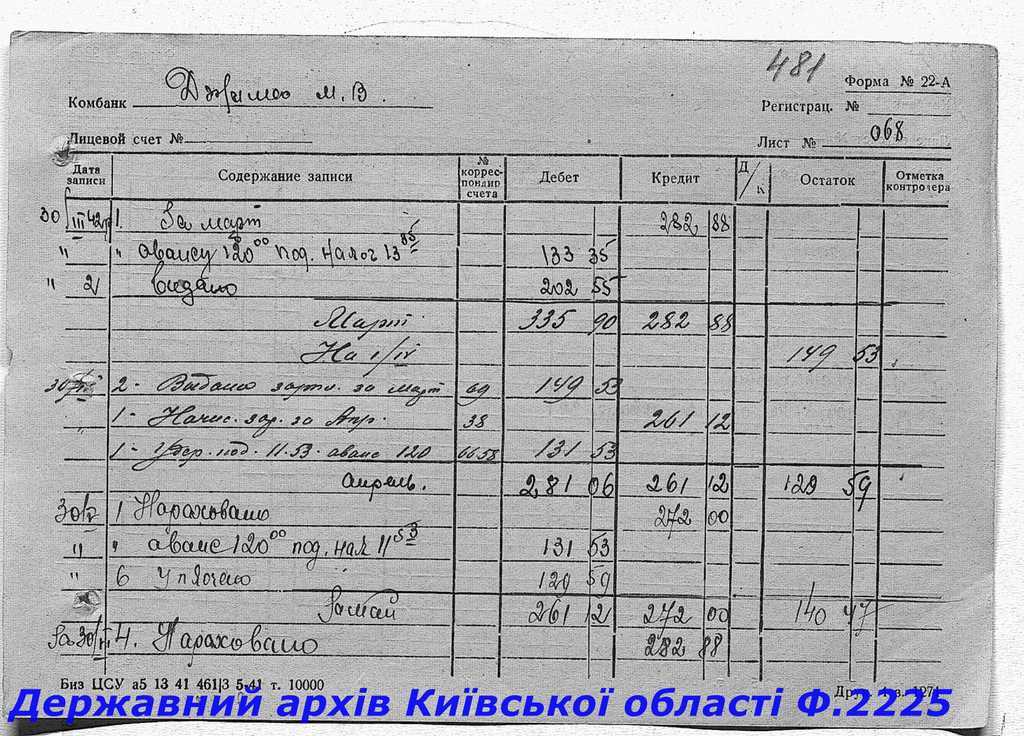 481
Форма № 22-А
Комбанк М. В.
Регистрац. №
Лицевой счет №
Лист № 068
Дата записи Содержание записи № коррес- пондир счета Дебет Кредит Д/К Остаток Отметка контролера
30/III 42 1. За март 282 88
" " авансу 120 00 под. налог 13 85 133 35
" 2 видано 202 55
Март 335 90 282 88
На 1/IV 149 53
30/IV 2 - Выдано зарпл. за март 69 149 53
" 1 - Начис. зар. за Апр. 38 261 12
1 - Удер. под. 11.53. аванс 120 6658 131 53
апрель. 281 06 261 12 129 59
30/V 1 Нараховано 272 00
" " аванс 120 00 под. нал 11 53 131 53
" 6 Уплочено 129 59
За май 261 12 272 00 140 47
За 30/VI 4. Нараховано 282 88
Биз ЦСУ а5 13 41 461|3 5-41 т. 10000
Державний архів Київської області Ф.2225